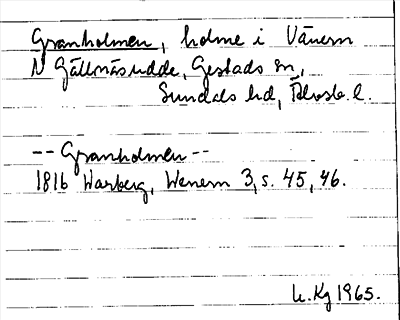 Granholmen, holme i Vänern
N Gällnäsudde, Gestads sn,
Sundals hd, Älvsb. l.
-- Granholmen --
1816 Warberg, Wenern 3, s. 45, 46.
U. Kg 1965.